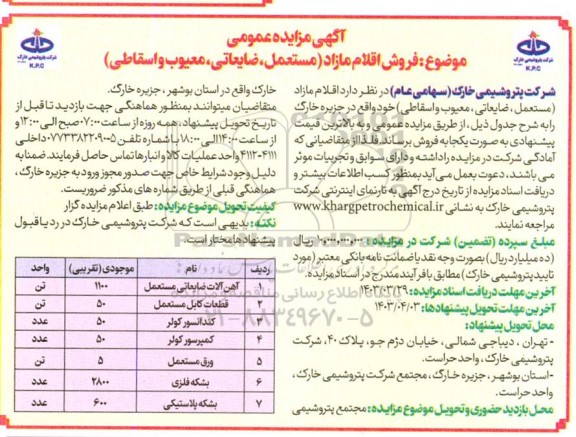 آگهی مزایده عمومی
موضوع: فروش اقلام مازاد (مستعمل، ضایعاتی، معیوب و اسقاطی)
شرکت پتروشیمی خارک
K.P.C
شرکت پتروشیمی خارک
K.P.C
شرکت پتروشیمی خارک (سهامی عام) در نظر دارد اقلام مازاد
(مستعمل، ضایعاتی، معیوب و اسقاطی) خود واقع در جزیره خارک
را به شرح جدول ذیل، از طریق مزایده عمومی و به بالاترین قیمت
پیشنهادی به صورت یکجا به فروش برساند. لذا از متقاضیانی که
آمادگی شرکت در مزایده را داشته و دارای سوابق و تجربیات موثر
می باشند، دعوت بعمل می آید بمنظور کسب اطلاعات بیشتر و
دریافت اسناد مزایده از تاریخ درج آگهی به تارنمای اینترنتی شرکت
پتروشیمی خارک به نشانی www.khargpetrochemical.ir
مراجعه نمایند.
مبلغ سپرده (تضمین) شرکت در مزایده: ۱۰،۰۰۰،۰۰۰،۰۰۰ ریال
(ده میلیارد ریال) بصورت وجه نقد یا ضمانت نامه بانکی معتبر (مورد
تایید پتروشیمی خارک) مطابق با فرآیند مندرج در اسناد مزایده.
آخرین مهلت دریافت اسناد مزایده: ۱۴۰۳/۰۳/۲۹
آخرین مهلت تحویل پیشنهادها: ۱۴۰۳/۰۴/۰۳
محل تحویل پیشنهاد:
- تهران، دیباجی شمالی، خیابان دژم جو، پلاک ۴۰، شرکت
پتروشیمی خارک، واحد حراست.
- استان بوشهر، جزیره خارک، مجتمع شرکت پتروشیمی خارک،
واحد حراست.
محل بازدید حضوری و تحویل موضوع مزایده: مجتمع پتروشیمی
خارک واقع در استان بوشهر، جزیره خارک.
متقاضیان میتوانند بمنظور هماهنگی جهت بازدید تا قبل از
تاریخ تحویل پیشنهاد، همه روزه از ساعت ۰۷:۰۰ صبح الی ۱۲:۰۰ و
از ساعت ۱۴:۰۰ الی ۱۸:۰۰ با شماره تلفن ۰۷۷۳۳۸۲۲۰۹۰۵ داخلی
۴۱۱۱-۴۱۱۲ واحد عملیات کالا و انبارها تماس حاصل فرمایند. ضمنا به
دلیل وجود شرایط خاص جهت صدور مجوز ورود به جزیره خارک،
هماهنگی قبلی از طریق شماره های مذکور ضروریست.
کیفیت تحویل موضوع مزایده: طبق اعلام مزایده گزار
نکته: بدیهی است که شرکت پتروشیمی خارک در رد یا قبول
پیشنهادها مختار است.
ردیف نام موجودی (تقریبی) واحد
۱ آهن آلات ضایعاتی مستعمل ۱۱۰۰ تن
۲ قطعات کابل مستعمل ۵۰ تن
۳ کندانسور کولر ۵۰ عدد
۴ کمپرسور کولر ۵۰ عدد
۵ ورق مستعمل ۵ تن
۶ بشکه فلزی ۲۸۰۰ عدد
۷ بشکه پلاستیکی ۶۰۰ عدد
۰۲۱-۸۸۳۴۹۶۷۰-۵